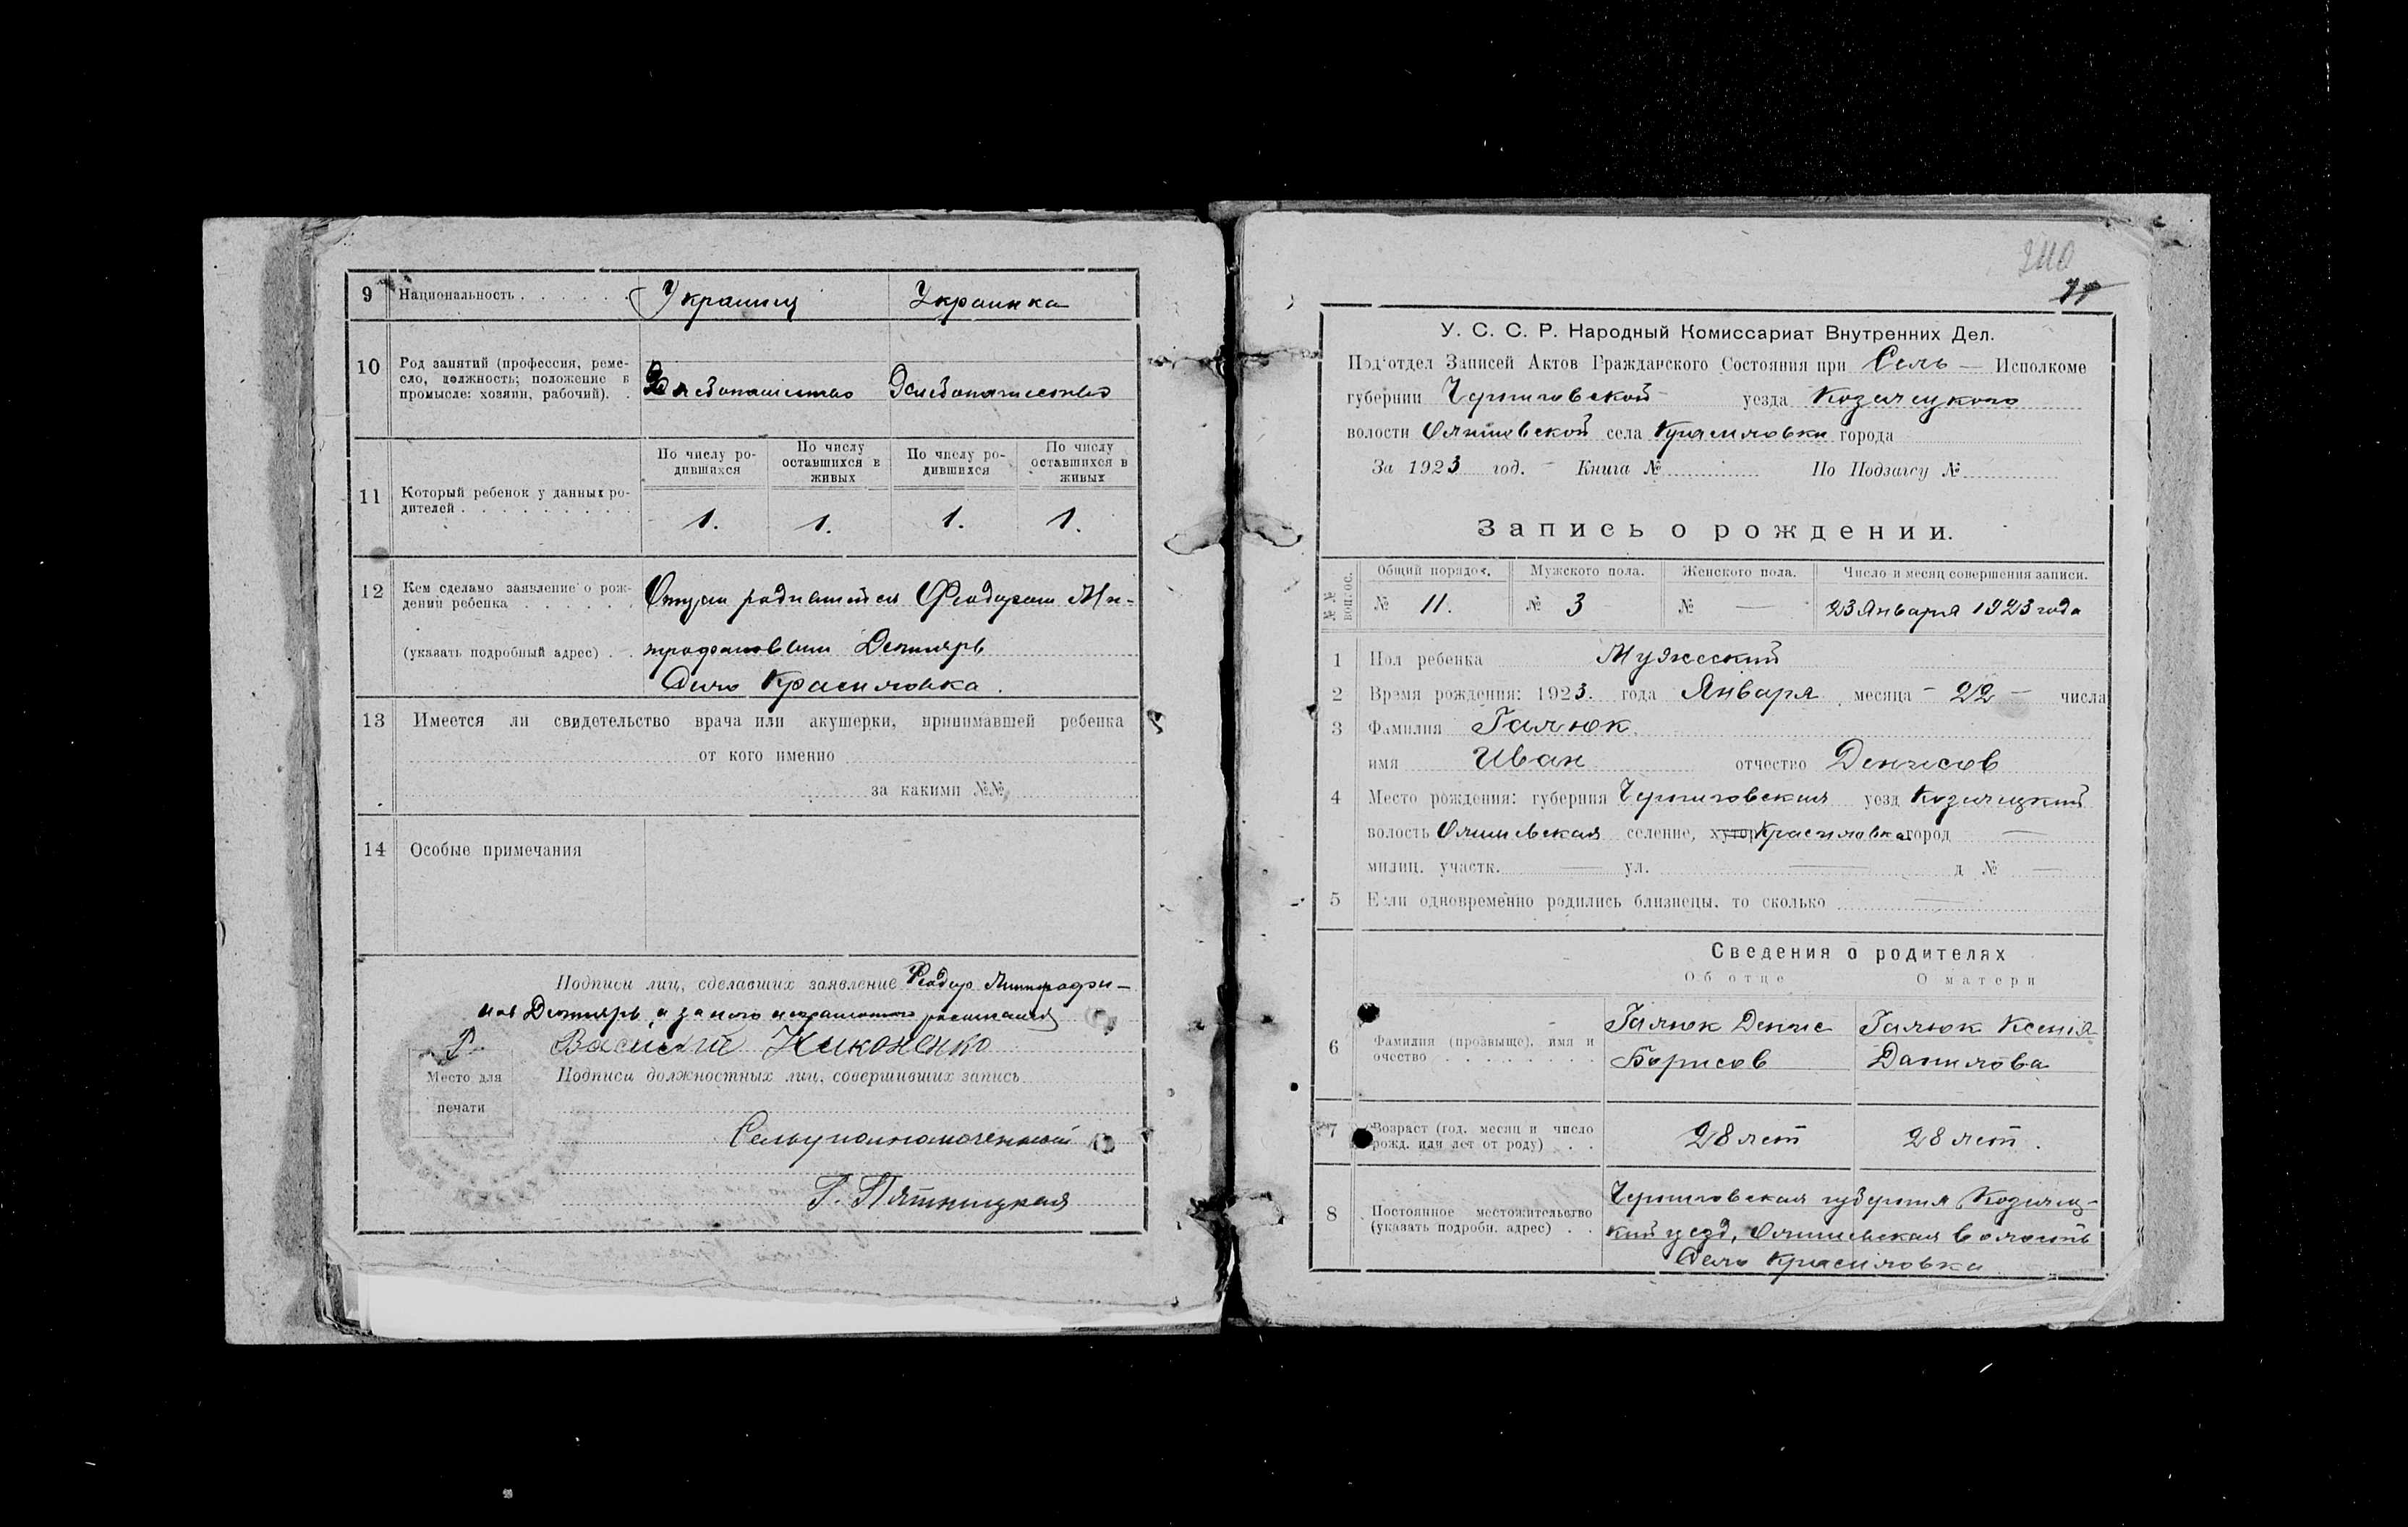 9 Национальность . . . . . . Украинец Украинка
10 Род занятий (профессия, реме-
сло, должность; положение в
промысле: хозяин, рабочий). . Хлебопашество Хлебопашество
По числу ро-
дившихся
По числу
оставшихся в
живых
По числу ро-
дившихся
По числу
оставшихся в
живых
11 Который ребенок у данных ро-
дителей . . . . . . . . . 1. 1. 1. 1.
12 Кем сделано заявление о рож-
дении ребенка . . . . . . Отцом родившегося Феодором Ми-
(указать подробный адрес) . . трофановым Дехтярь
Село Красиловка.
13 Имеется ли свидетельство врача или акушерки, принимавшей ребенка
от кого именно
за какими №№
14 Особые примечания
Подписи лиц, сделавших заявление Феодор Митрофа-
нов Дехтярь, а за него неграмотного расписался
Василий Никоненко
Место для
печати
Подписи должностных лиц, совершивших запись
Сельуполномоченный
Г. Пятницкая
240
У. С. С. Р. Народный Комиссариат Внутренних Дел.
Под'отдел Записей Актов Гражданского Состояния при Сель — Исполкоме
губернии Черниговской уезда Козелецкого
волости Олишевской села Красиловки города
За 1923 год. Книга № По Подзагсу №
Запись о рождении.
№№ вопрос. Общий порядок. Мужского пола. Женского пола. Число и месяц совершения записи.
№ 11. № 3 № — 23 Января 1923 года
1 Пол ребенка Мужеский
2 Время рождения: 1923. года Января месяца - 22 - числа
3 Фамилия Галюк
имя Иван отчество Денисов
4 Место рождения: губерния Черниговская уезд Козелецкий
волость Олишевская селение, хутор Красиловка город —
милиц. участк. — ул. — д № —
5 Если одновременно родились близнецы, то сколько —
Сведения о родителях
Об отце О матери
6 Фамилия (прозвыще), имя и
очество . . . . . . . .
Галюк Денис
Борисов
Галюк Ксения
Данилова
7 Возраст (год, месяц и число
рожд. или лет от роду) . . 28 лет 28 лет.
8 Постоянное местожительство
(указать подробн. адрес) . .
Черниговская губерния, Козелец-
кий уезд, Олишевская волость
Село Красиловка